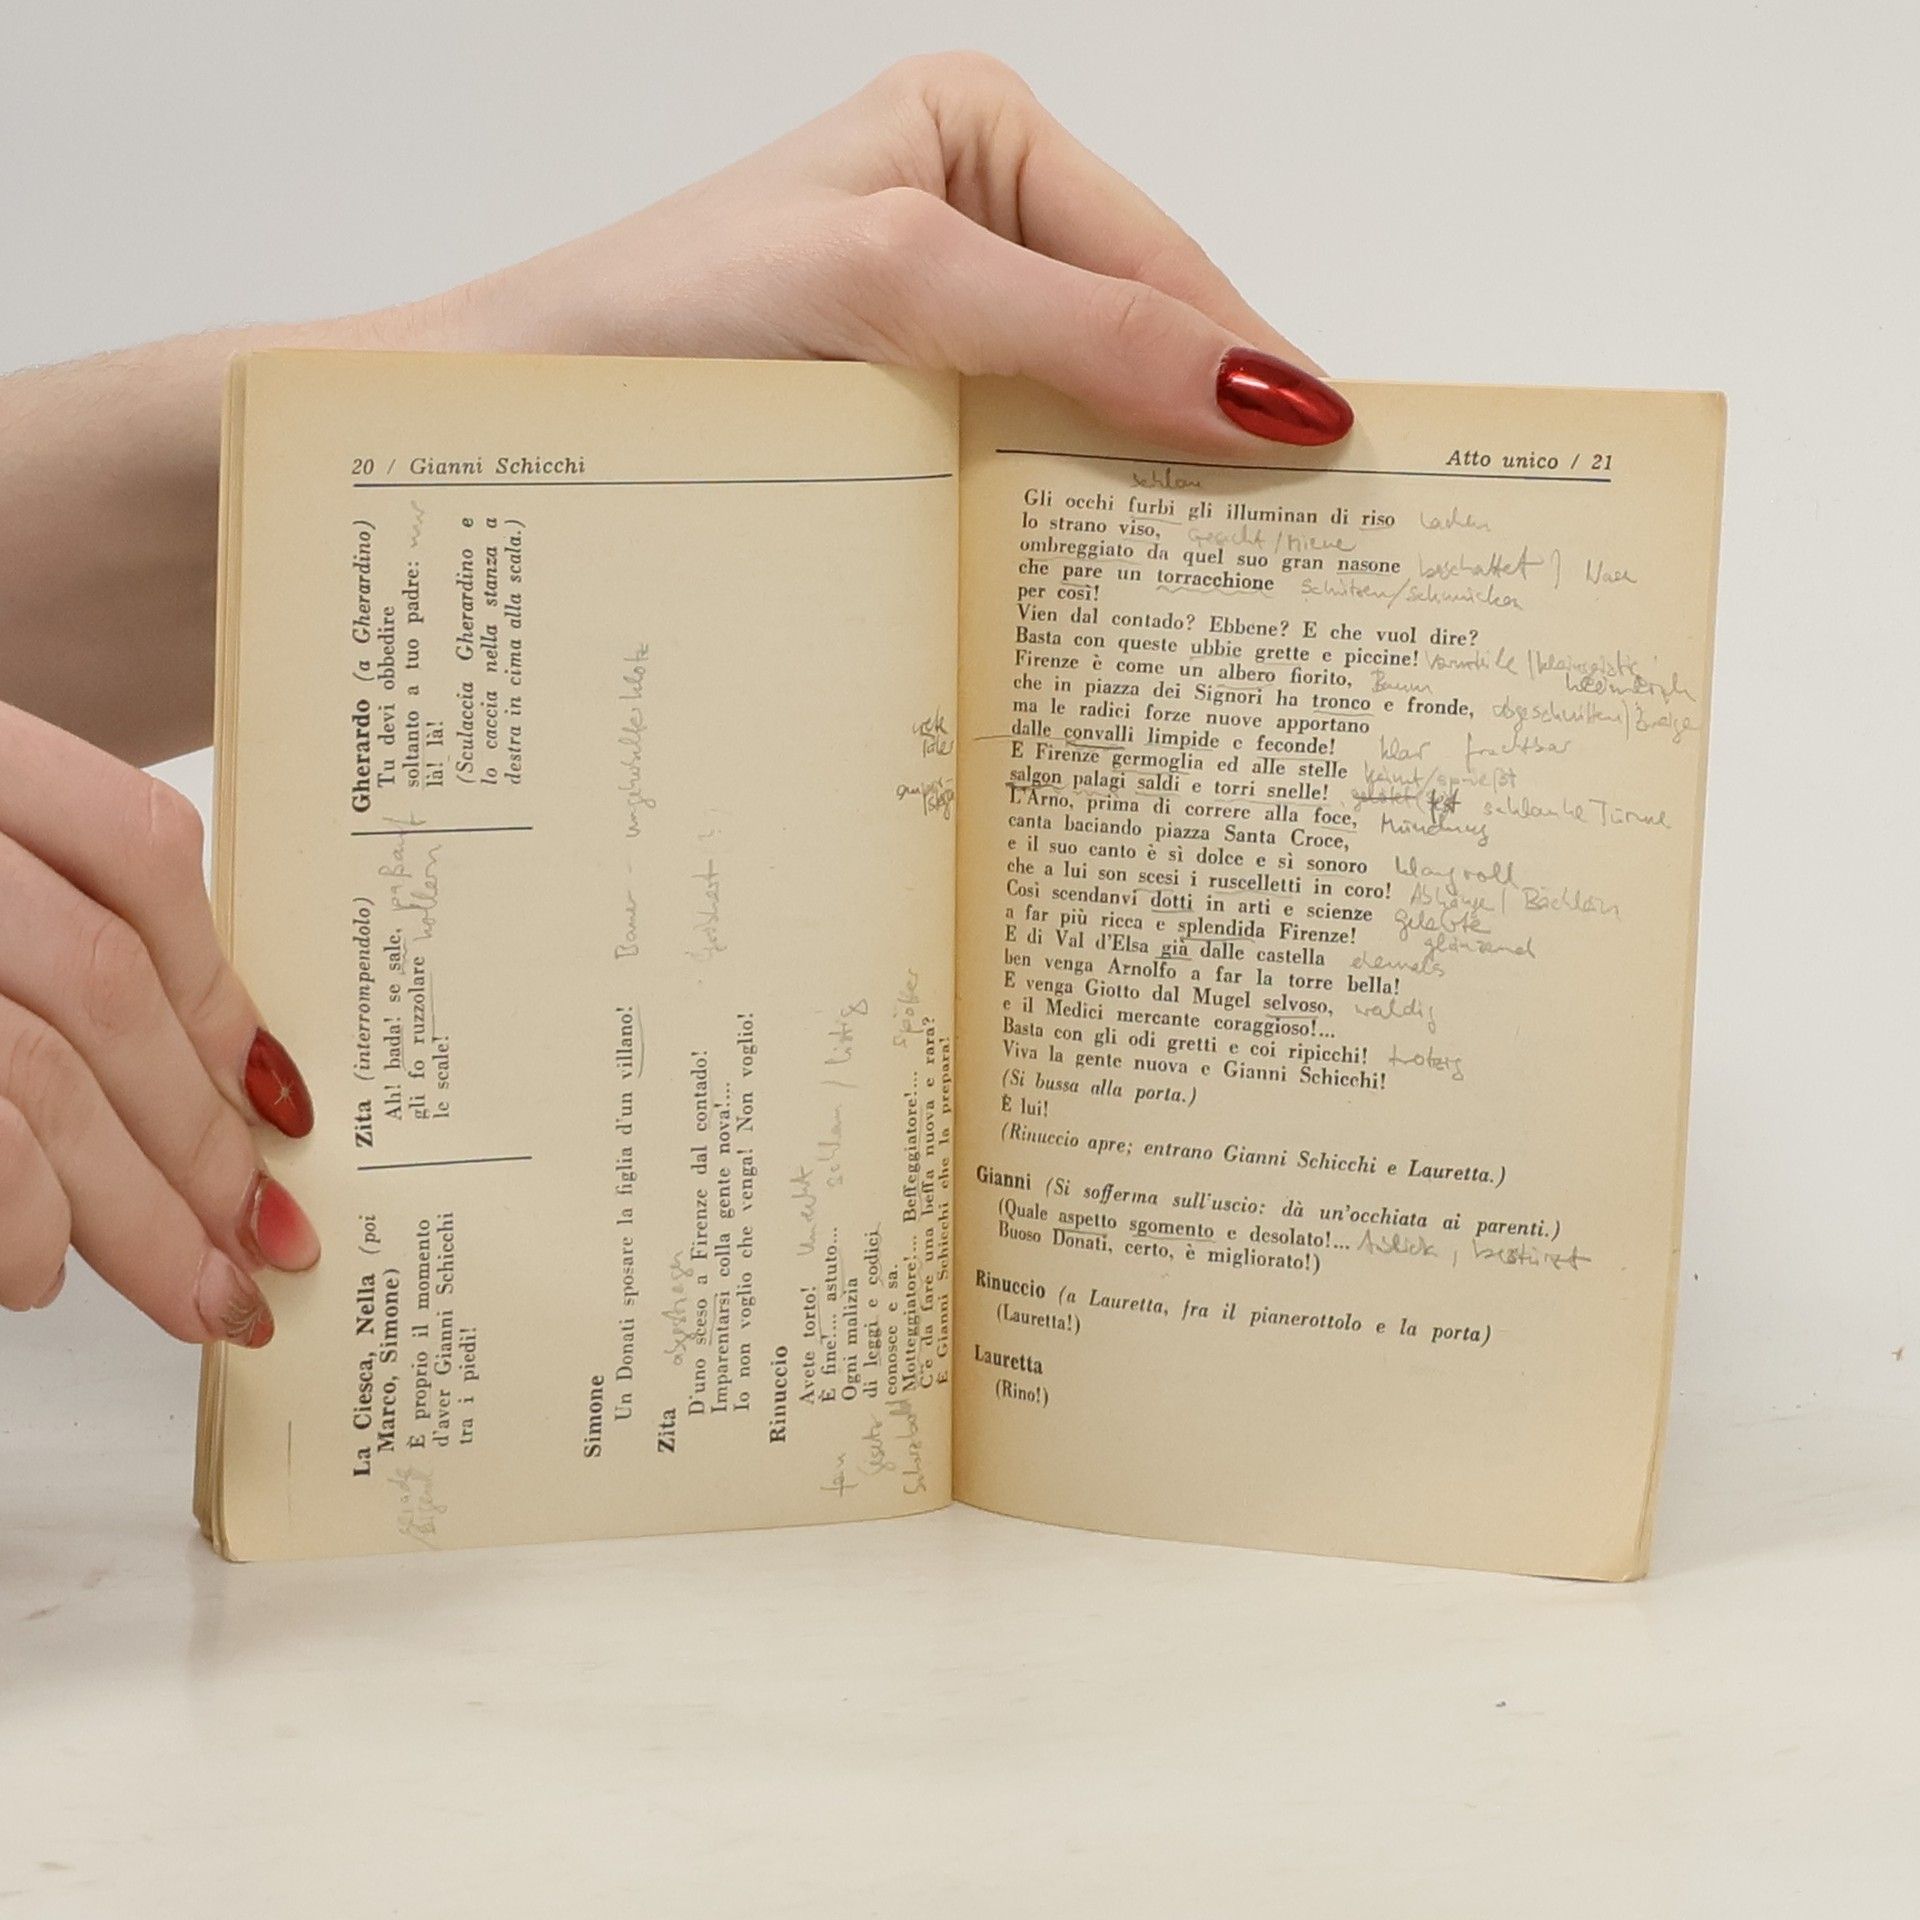 20 / Gianni Schicchi
La Ciesca, Nella (poi
Marco, Simone)
È proprio il momento
d'aver Gianni Schicchi
tra i piedi!
Zita (interrompendolo)
Ah! bada! se sale,
gli fo ruzzolare
le scale!
Gherardo (a Gherardino)
Tu devi obbedire
soltanto a tuo padre:
là! là!
(Sculaccia Gherardino e
lo caccia nella stanza a
destra in cima alla scala.)
Simone
Un Donati sposare la figlia d'un villano!
Zita
D'uno sceso a Firenze dal contado!
Imparentarsi colla gente nova!...
Io non voglio che venga! Non voglio!
Rinuccio
Avete torto!
È fine!... astuto...
Ogni malizia
di leggi e codici
conosce e sa.
Motteggiatore!... Beffeggiatore!...
C'è da fare una beffa nuova e rara?
È Gianni Schicchi che la prepara!
Atto unico / 21
schlau
Gli occhi furbi gli illuminan di riso lachen
lo strano viso, Gesicht / Miene
ombreggiato da quel suo gran nasone beschattet
che pare un torracchione schützen/schmücken
per così!
Vien dal contado? Ebbene? E che vuol dire?
Basta con queste ubbie grette e piccine! Vorurteile
Firenze è come un albero fiorito, Baum
che in piazza dei Signori ha tronco e fronde, abgeschnitten / Zweige
ma le radici forze nuove apportano
dalle convalli limpide e feconde! klar fruchtbar
E Firenze germoglia ed alle stelle keimt/sprießt
salgon palagi saldi e torri snelle! fest schlanke Türme
L'Arno, prima di correre alla foce, Mündung
canta baciando piazza Santa Croce,
e il suo canto è sì dolce e sì sonoro klangvoll
che a lui son scesi i ruscelletti in coro! Abhänge / Bächlein
Così scendanvi dotti in arti e scienze gelehrte
a far più ricca e splendida Firenze! glänzend
E di Val d'Elsa già dalle castella ehemals
ben venga Arnolfo a far la torre bella!
E venga Giotto dal Mugel selvoso, waldig
e il Medici mercante coraggioso!...
Basta con gli odi gretti e coi ripicchi! trotzig
Viva la gente nuova e Gianni Schicchi!
(Si bussa alla porta.)
È lui!
(Rinuccio apre; entrano Gianni Schicchi e Lauretta.)
Gianni (Si sofferma sull'uscio: dà un'occhiata ai parenti.)
(Quale aspetto sgomento e desolato!... Anblick, bestürzt
Buoso Donati, certo, è migliorato!)
Rinuccio (a Lauretta, fra il pianerottolo e la porta)
(Lauretta!)
Lauretta
(Rino!)